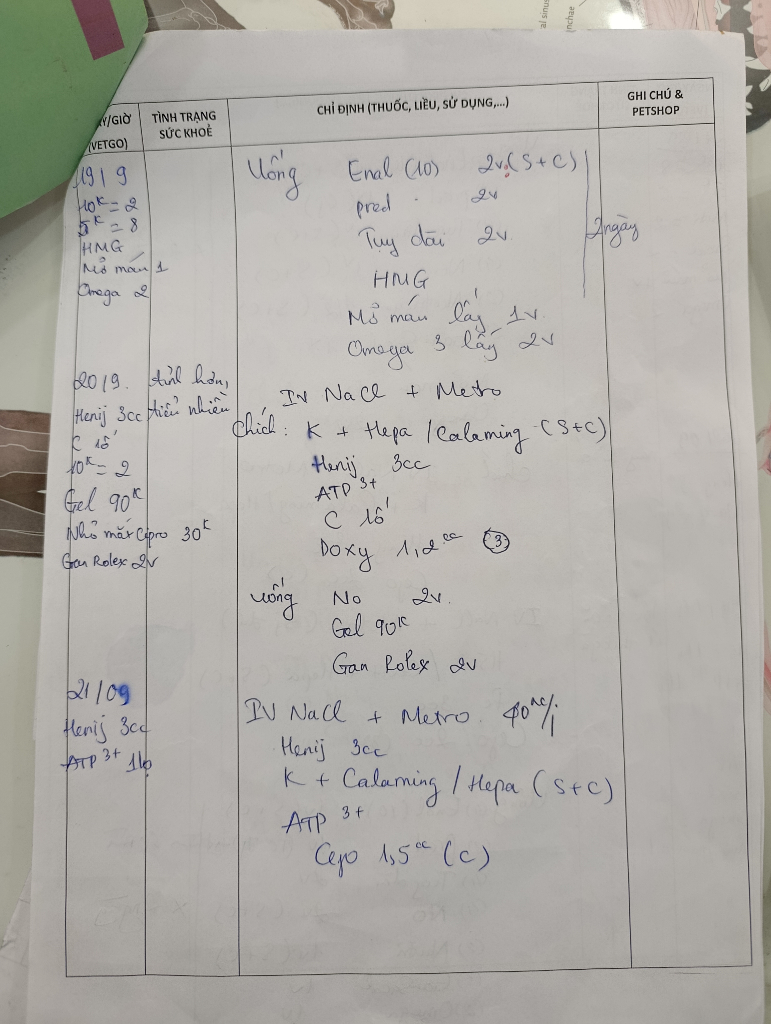 al sinus
nchae
Y/GIỜ
(VETGO)
TÌNH TRẠNG
SỨC KHOẺ
CHỈ ĐỊNH (THUỐC, LIỀU, SỬ DỤNG,...)
GHI CHÚ &
PETSHOP
19/9
10K = 2
5K = 8
HMG
Mỡ máu 1
Omega 2
Uống Enal (10) 2v (S+C)
pred 2v
Tuỵ dài 2v
HMG
2 ngày
Mỡ máu lấy 1v
Omega 3 lấy 2v
20/9.
Henij 3cc
C 1ố
10K = 2
Gel 90K
Nhỏ mắt Cipro 30K
Gan Rolex 2v
tỉnh hơn,
tiểu nhiều
IV NaCl + Metro
Chích: K + Hepa / Calaming (S+C)
Henij 3cc
ATP 3+
C 1ố
Doxy 1,2cc (3)
Uống No 2v.
Gel 90K
Gan Rolex 2v
21/09
Henij 3cc
ATP 3+ 1lọ
IV NaCl + Metro
Henij 3cc
K + Calaming / Hepa (S+C)
ATP 3+
Cepo 1,5cc (C)